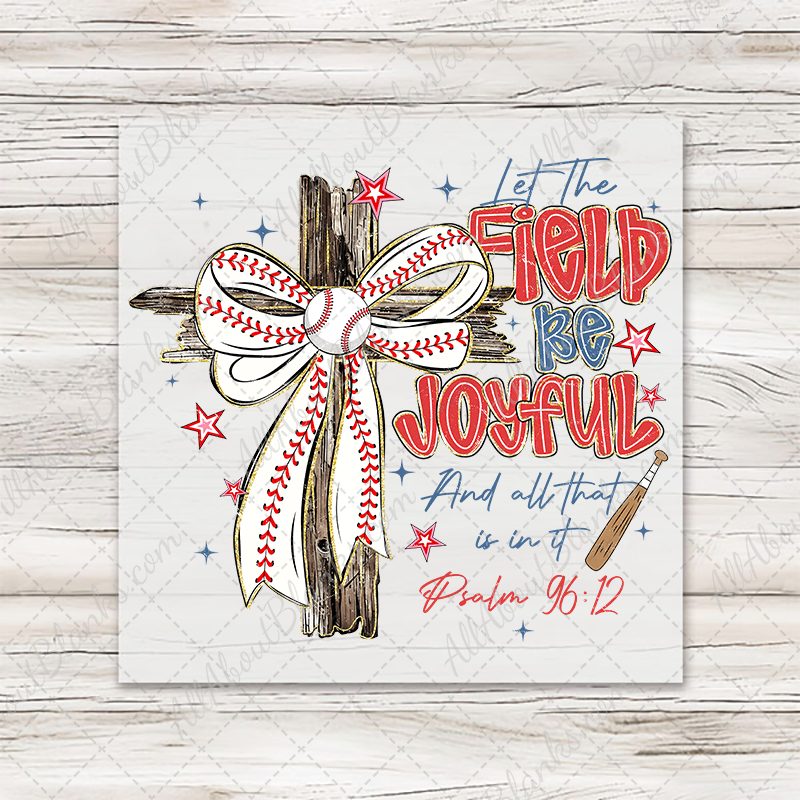 Let The
FIELD
BE
JOYFUL
And all that
is in it
Psalm 96:12
AllAboutBlanks.com